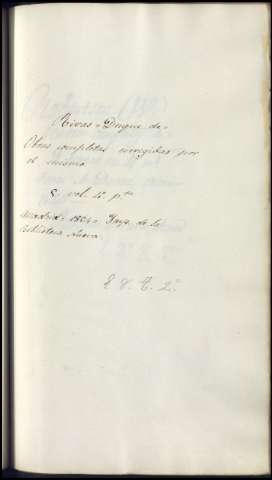 Rivas = Duque de =
Obras completas corregidas por
el mismo
5. vol. 4º. pta
Madrid = 1854 = Imp. de la
biblioteca nueva
E 8. T. 2º.